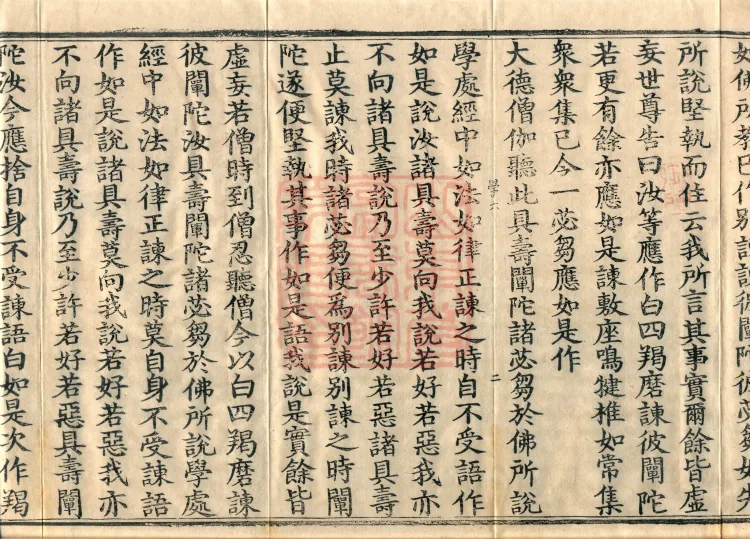 如佛所教已作別諫諫彼闡陀彼苾芻如先
所說堅執而住云我所言其事實爾餘皆虛
妄世尊告曰汝等應作白四羯磨諫彼闡陀
若更有餘亦應如是諫敷座鳴犍椎如常集
衆衆集已令一苾芻應如是作
大德僧伽聽此具壽闡陀諸苾芻於佛所說
學六 二
學處經中如法如律正諫之時自不受語作
如是說汝諸具壽莫向我說若好若惡我亦
不向諸具壽說乃至少許若好若惡諸具壽
止莫諫我時諸苾芻便爲別諫別諫之時闡
陀遂便堅執其事作如是語我說是實餘皆
虛妄若僧時到僧忍聽僧今以白四羯磨諫
彼闡陀汝具壽闡陀諸苾芻於佛所說學處
經中如法如律正諫之時莫自身不受諫語
作如是說諸具壽莫向我說若好若惡我亦
不向諸具壽說乃至少許若好若惡具壽闡
陀汝今應捨自身不受諫語白如是次作羯